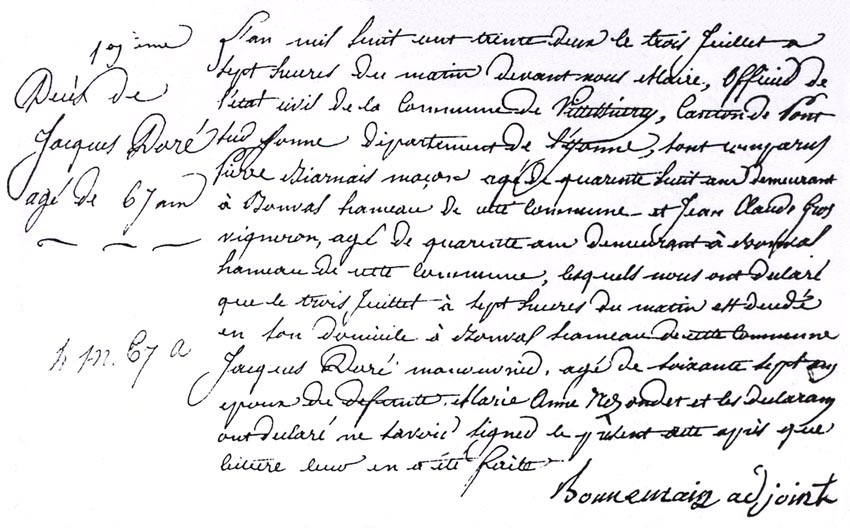 19ième
Décès de
Jacques Doré
agé de 67 ans
h m. 67 a
L'an mil huit cent trente deux le trois Juillet a
sept heures du matin devant nous Maire, Officier de
l'état civil de la Commune de Villethierry, Canton de Pont
sur Yonne département de l'Yonne, sont comparus
Pierre maçon agé de quarente huit ans demeurant
à Bonval hameau de cette Commune et Jean Claude Gros
vigneron, agé de quarente ans demeurant à Bonval
hameau de cette Commune, lesquels nous ont declaré
que le trois Juillet à sept heures du matin est decedé
en son domicile à Bonval hameau de cette Commune
Jacques Doré manouvrier, agé de soixante sept ans
epoux de defunte Marie Anne et les declarans
ont declaré ne savoir signer le présent acte après que
lecture leur en a été faite
Bonnemain adjoint